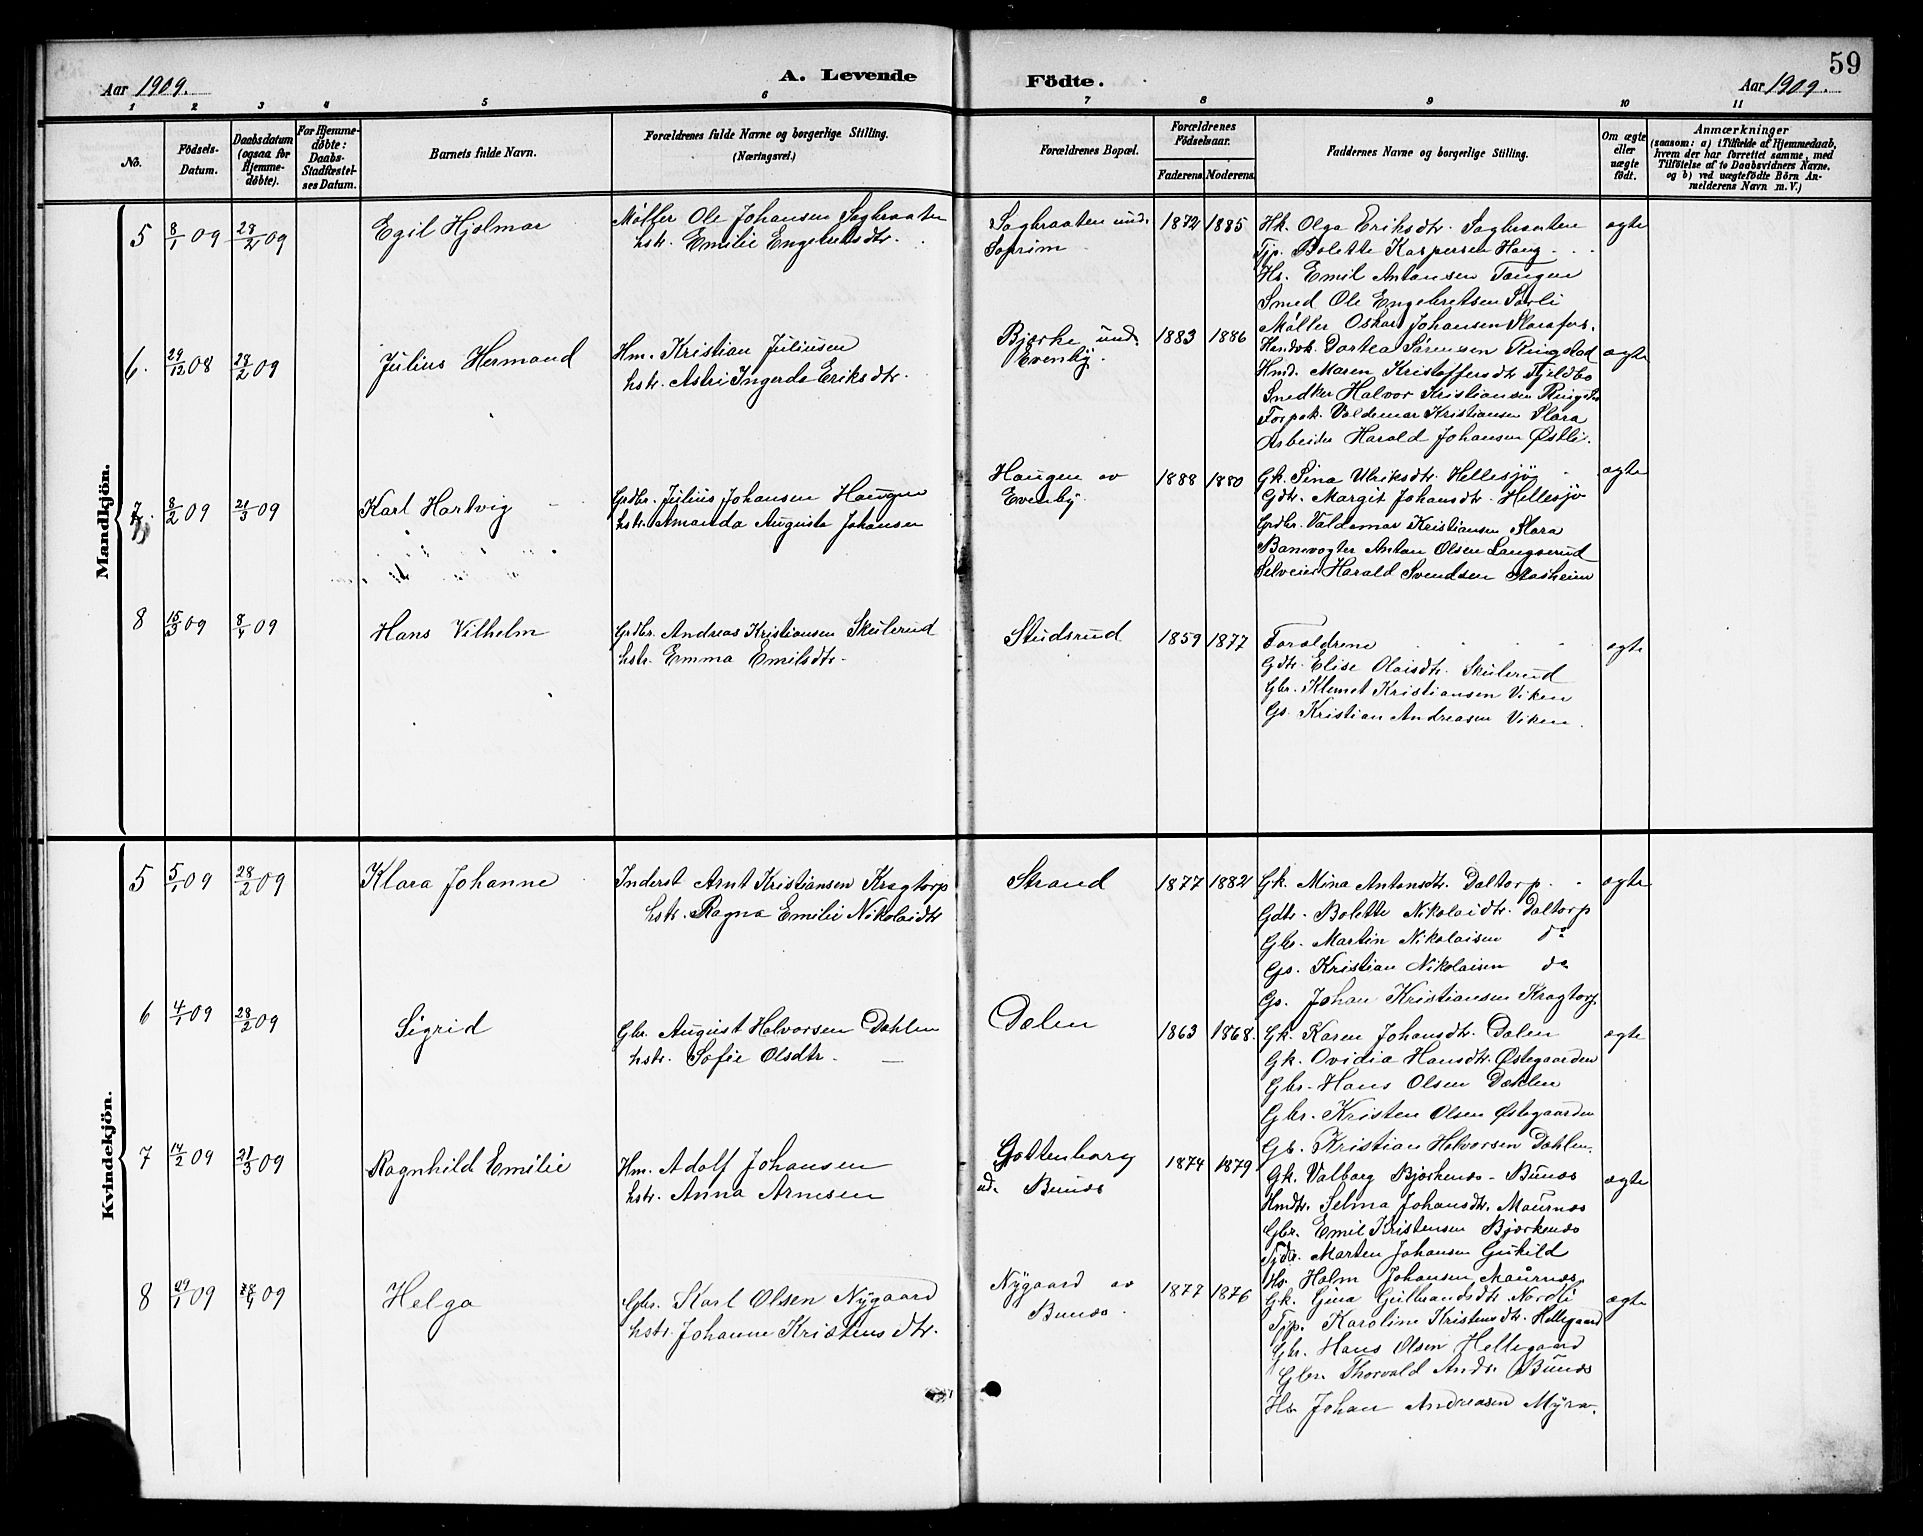 59
Aar 1909.
A. Levende
Födte.
Aar 1909.
1 2 3 4 5 6 7 8 9 10 11
No.
Födsels-Datum.
Daabsdatum (ogsaa for Hjemme-døbte).
For Hjemme-døbte: Daabs-Stadfæstel-ses Datum.
Barnets fulde Navn.
Forældrenes fulde Navne og borgerlige Stilling. (Næringsvei.)
Forældrenes Bopæl.
Forældrenes Födselsaar.
Faderens Moderens
Faddernes Navne og borgerlige Stilling.
Om ægte eller uægte født.
Anmærkninger
(saasom: a) i Tilfælde af Hjemmedaab,
hvem der har forrettet samme, med
Tilføielse af to Daabsvidners Navne,
og b) ved uægtefødte Börn An-
melderens Navn m. V.)
Mandkjön.
5 8/1 09 28/2 09 Egil Hjalmar
Møller Ole Johansen Sagbraaten
hstr. Emilie Engebretsdtr.
Sagbraaten und.
Soprim
1872 1885
Hk. Olga Eriksdtr. Sagbraaten
Tjp. Bolette Kaspersen Haug
Hs. Emil Antonsen Tangen
Smed Ole Engebretsen Sørli
Møller Oskar Johansen Slorafos.
ægte
6. 29/12 08 28/2 09 Julius Hermand
Hm. Kristian Juliusen
hstr. Astri Ingerda Eriksdtr.
Bjørke und.
Evenby.
1883 1886
Handvk. Dortea Sørensen Ringstad
Hmd. Maren Kristoffersdtr Fjeldbo
Snedker Halvor Kristiansen Ringstad
Forpak. Valdemar Kristiansen Slora
Arbeider Harald Johansen Østli.
ægte
7. 8/2 09 21/3 09 Karl Hartvig
Grdbr. Julius Johansen Haugen
hstr. Amanda Augusta Johansen
Haugen av
Evenby
1888 1880
Gk. Sina Ulriksdtr. Hellesjø
Gdtr. Margit Johansdtr. Hellesjø
Grdbr. Valdemar Kristiansen Slora
Banevogter Anton Olsen Langserud
Selveier Harald Svendsen Aasheim
ægte
8 15/3 09 8/4 09 Hans Vilhelm
Grdbr. Andreas Kristiansen Skulerud
hstr. Emma Emilsdtr.
Studsrud
1859 1877
Forældrene
Gdtr. Elise Olaisdtr. Skulerud
Gbr. Klemet Kristiansen Viken
Gs. Kristian Andreasen Viken.
ægte
Kvindekjön.
5 5/1 09 28/2 09 Klara Johanne
Inderst Arnt Kristiansen Kragtorp
hstr. Ragna Emilie Nikolaidtr
Strand
1877 1882
Gk. Mina Antonsdtr. Daltorp.
Gdtr. Bolette Nikolaidtr. Daltorp
Gbr. Martin Nikolaisen do
Gs. Kristian Nikolaisen do
Gs. Johan Kristiansen Kragtorp.
ægte
6 4/1 09 28/2 09 Sigrid
Gbr. August Halvorsen Dahlen
hstr. Sofie Olsdtr.
Dalen
1863 1868.
Gk. Karen Johansdtr. Dalen
Gk. Ovidia Hansdtr. Østegaarden
Gbr. Hans Olsen Dahlen
Gbr. Kristen Olsen Østegaarden
Gb. Kristian Halvorsen Dahlen.
ægte
7 14/2 09 21/3 09 Ragnhild Emilie
Hm. Adolf Johansen
hstr. Anna Arnesen
Gottenborg
ud. Bunæs
1874 1879
Gk. Valborg Bjørkenæs - Bunæs
Hmdtr. Selma Johansdtr. Maurnæs
Gbr. Emil Kristensen Bjørkenæs
Marten Johansen
Hs. Halm Johansen Maurnæs.
ægte
8 29/1 09 28/4 09 Helga
Gbr. Karl Olsen Nygaard
hstr. Johanne Kristiansdtr.
Nygaard av
Bunæs.
1877 1876
Gk. Gina Gulbrandsdtr Nordli
Tjp. Karoline Kristensdtr. Hellegaard
Gbr. Hans Olsen Hellegaard
Gbr. Thorvald Andr. Bunæs
Hs. Johan Andreasen Myra.
ægte